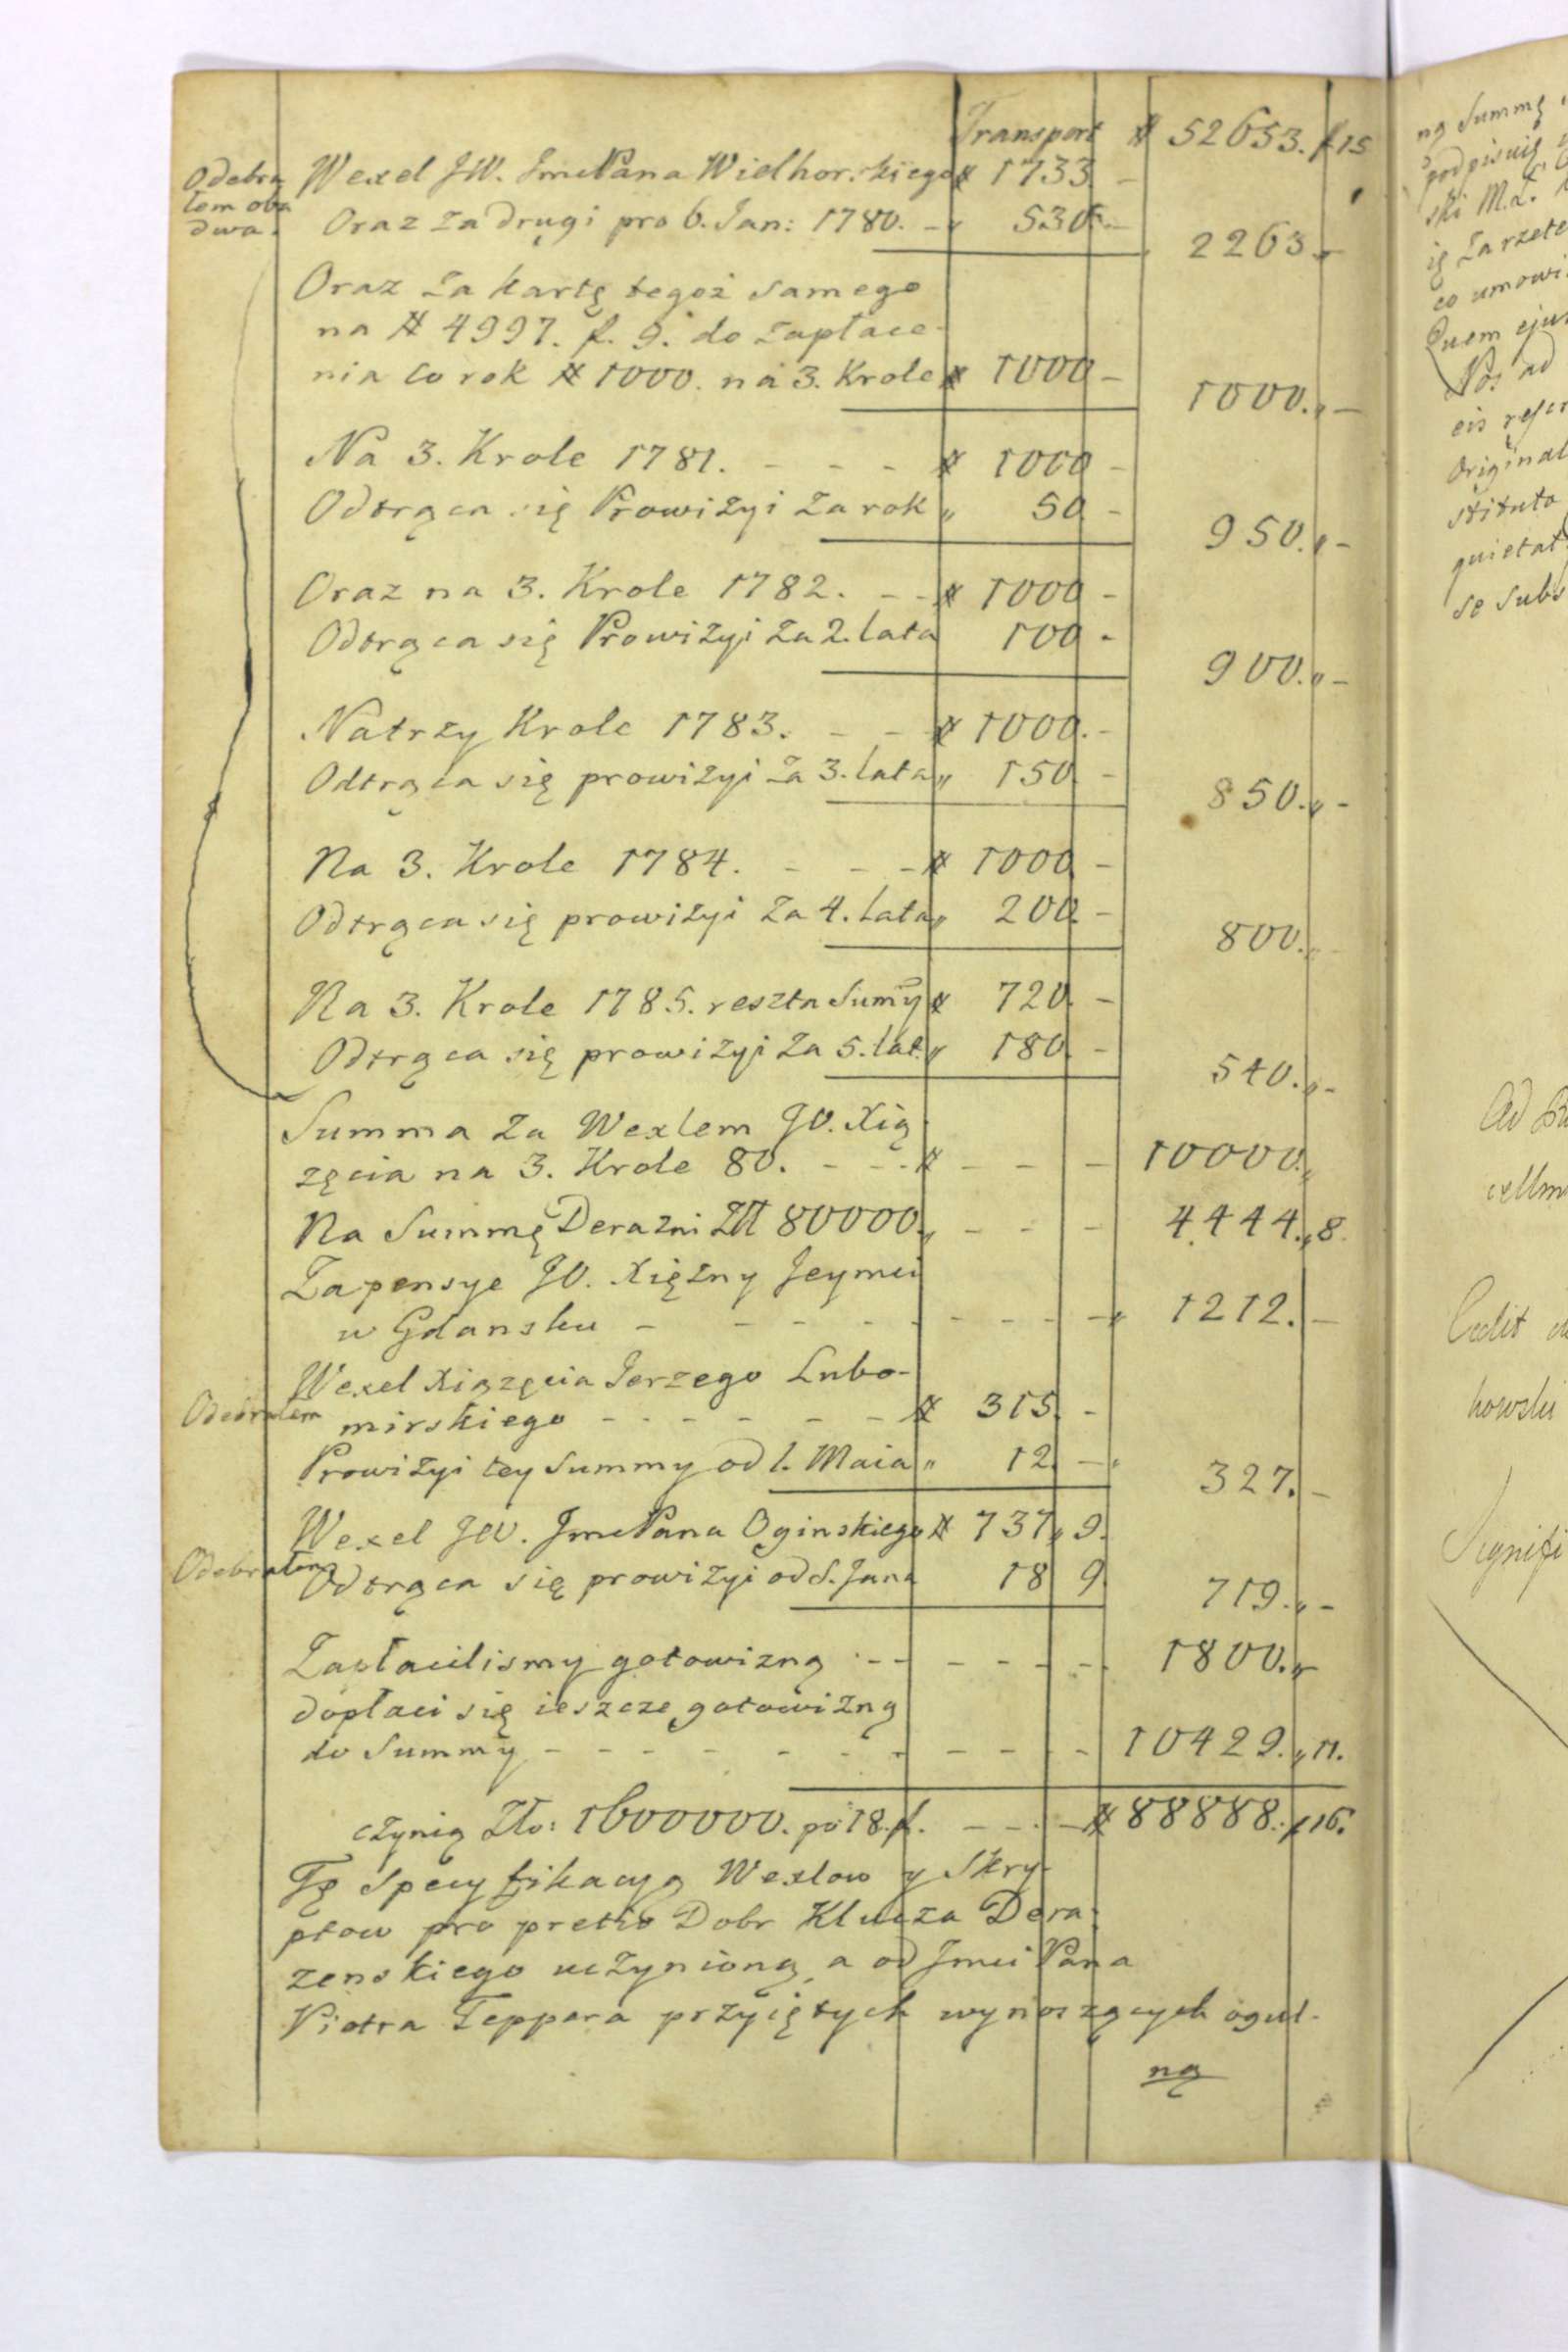 Transport # 52653. f 15
Odebra Wexel JW. JmcPana Wielhorskiego # 1733 -
łem oba
dwa. Oraz za drugi pro 6. Jan: 1780. - „ 530. - 2263 „ -
Oraz za kartę tegoż samego
na # 4997. f. 9. do zapłace-
nia co rok # 1000. na 3. Krole # 1000 - 1000. „ -
Na 3. Krole 1781. - - - # 1000 -
Odtrąca się Prowizyi za rok „ 50 - 950. „ -
Oraz na 3. Krole 1782. - - # 1000 -
Odtrąca się Prowizyi za 2. lata 100 - 900. „ -
Na trzy Krole 1783. - - # 1000. -
Odtrąca się prowizyi za 3. lata „ 150. - 850. „ -
Na 3. Krole 1784. - - - # 1000 -
Odtrąca się prowizyi za 4. lata „ 200. - 800. „ -
Na 3. Krole 1785. reszta Sumy # 720. -
Odtrąca się prowizyi za 5. lat. „ 180. - 540. „ -
Summa za Wexlem JO. Xią
zęcia na 3. Krole 80. - - - # - - - 10000. „
Na Summę Derazni Złł 80000. „ - - - 4444. „ 8.
Za pensye JO. Xiężny Jeymci
w Gdansku - - - - - - - - - „ 1212. -
Wexel Xiązęcia Jerzego Lubo-
Odebrałem mirskiego - - - - - - # 315. -
Prowizyi tey Summy od 1. Maia „ 12. - 327. -
Wexel JW. JmcPana Oginskiego # 737 „ 9.
Odebrałem Odtrąca się prowizyi od S. Jana 18 9 719. „ -
Zapłacilismy gotowizną - - - - - - 1800. „ -
dopłaci się ieszcze gotowizną
do Summy - - - - - - - - - 10429. „ 11.
czynią Zło: 1600000. po 18. f. - - - # 88888. f 16.
Tę specyfikacyą Wexlow y Skry-
ptow pro pretio Dobr Klucza Dera-
zenskiego uczynioną, a od Jmci Pana
Piotra Teppera przyiętych wynoszących ogul-
ną
ną Summę
podpisuię
ski
ię za rzete
co umowi
Quem ejus
Nos ad
eis
Original
stituto
quietat
se Subs
Ad
Cedit
kowski
Signifi